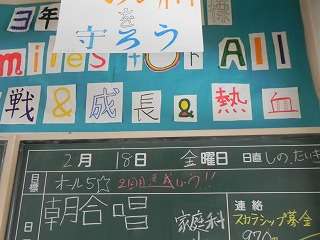 3年
標
を
守ろう
miles for All
戦&成長&熱血
2月 8日 金曜日 日直 しの、たいき
目標 オール5☆ 2回目達成しよう!!
朝合唱
家庭科
連絡
スカラシップ基金
970円